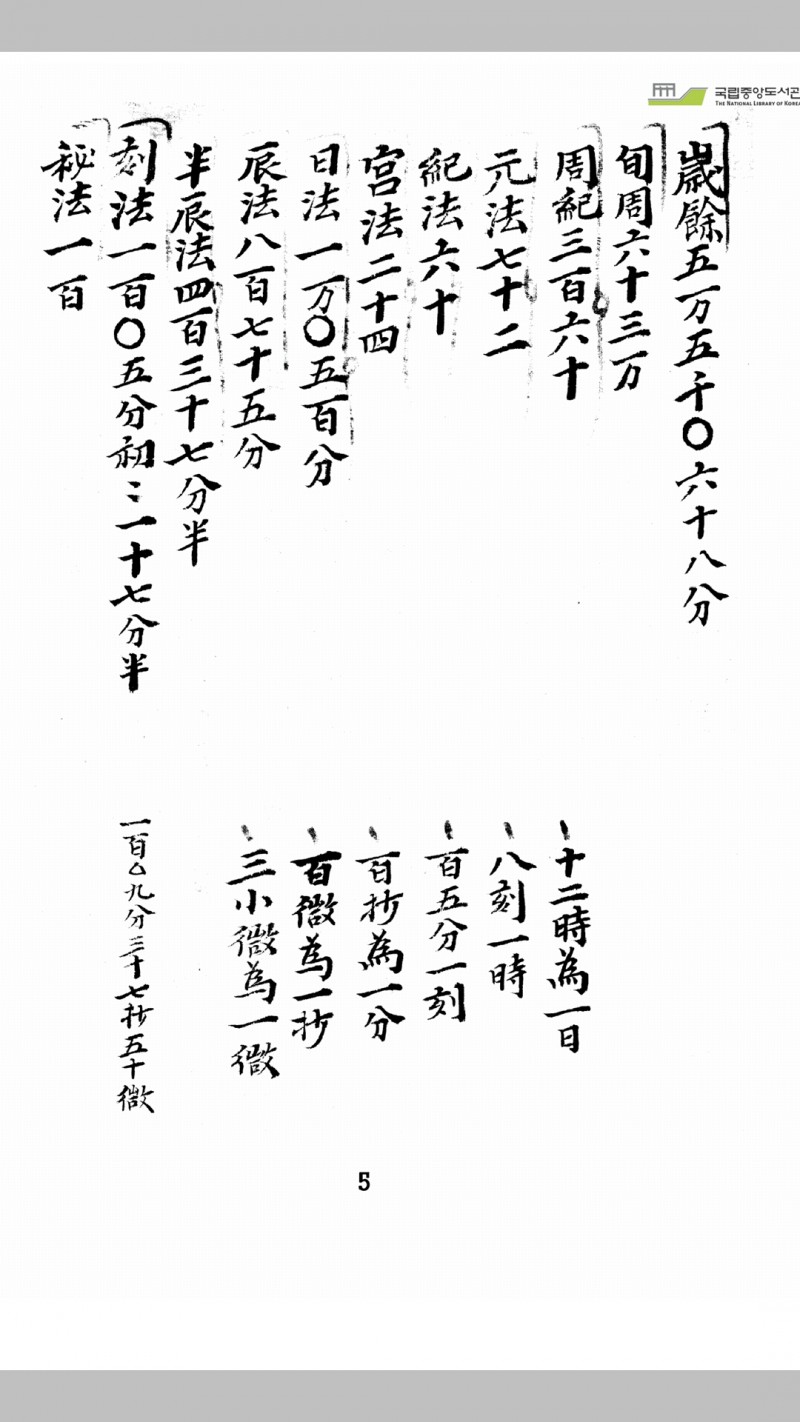 국립중앙도서관
THE NATIONAL LIBRARY OF KOREA
歲餘五万五千〇六十八分
旬周六十三万
周紀三百六十
元法七十二
紀法六十
宮法二十四
日法一万〇五百分
辰法八百七十五分
半辰法四百三十七分半
刻法一百〇五分初〻一十七分半
秘法一百
十二時為一日
八刻一時
百五分一刻
百抄為一分
百微為一抄
三小微為一微
一百〇九分三十七抄五十微
5